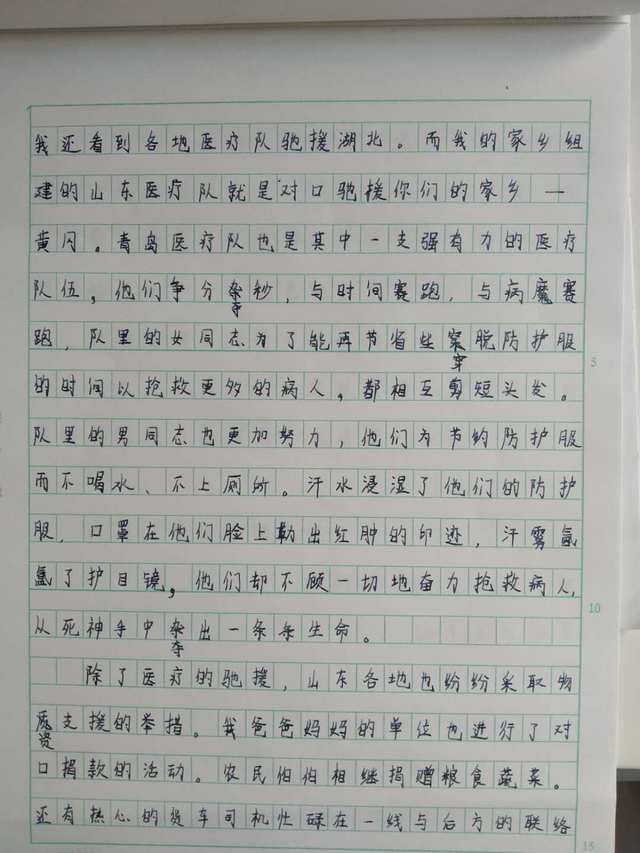 我还看到各地医疗队驰援湖北。而我的家乡组
建的山东医疗队就是对口驰援你们的家乡一
黄冈。青岛医疗队也是其中一支强有力的医疗
队伍，他们争分夺秒，与时间赛跑，与病魔赛
跑，队里的女同志为了能再节省些穿脱防护服
的时间以抢救更多的病人，都相互剪短头发。
5
队里的男同志也更加努力，他们为节约防护服
而不喝水、不上厕所。汗水浸湿了他们的防护
服，口罩在他们脸上勒出红肿的印迹，汗雾氤
氲了护目镜，他们却不顾一切地奋力抢救病人，
10
从死神手中夺出一条条生命。
除了医疗的驰援，山东各地也纷纷采取物
资支援的举措。我爸爸妈妈的单位也进行了对
口捐款的活动。农民伯伯相继捐赠粮食蔬菜。
还有热心的货车司机忙碌在一线与后方的联络
15